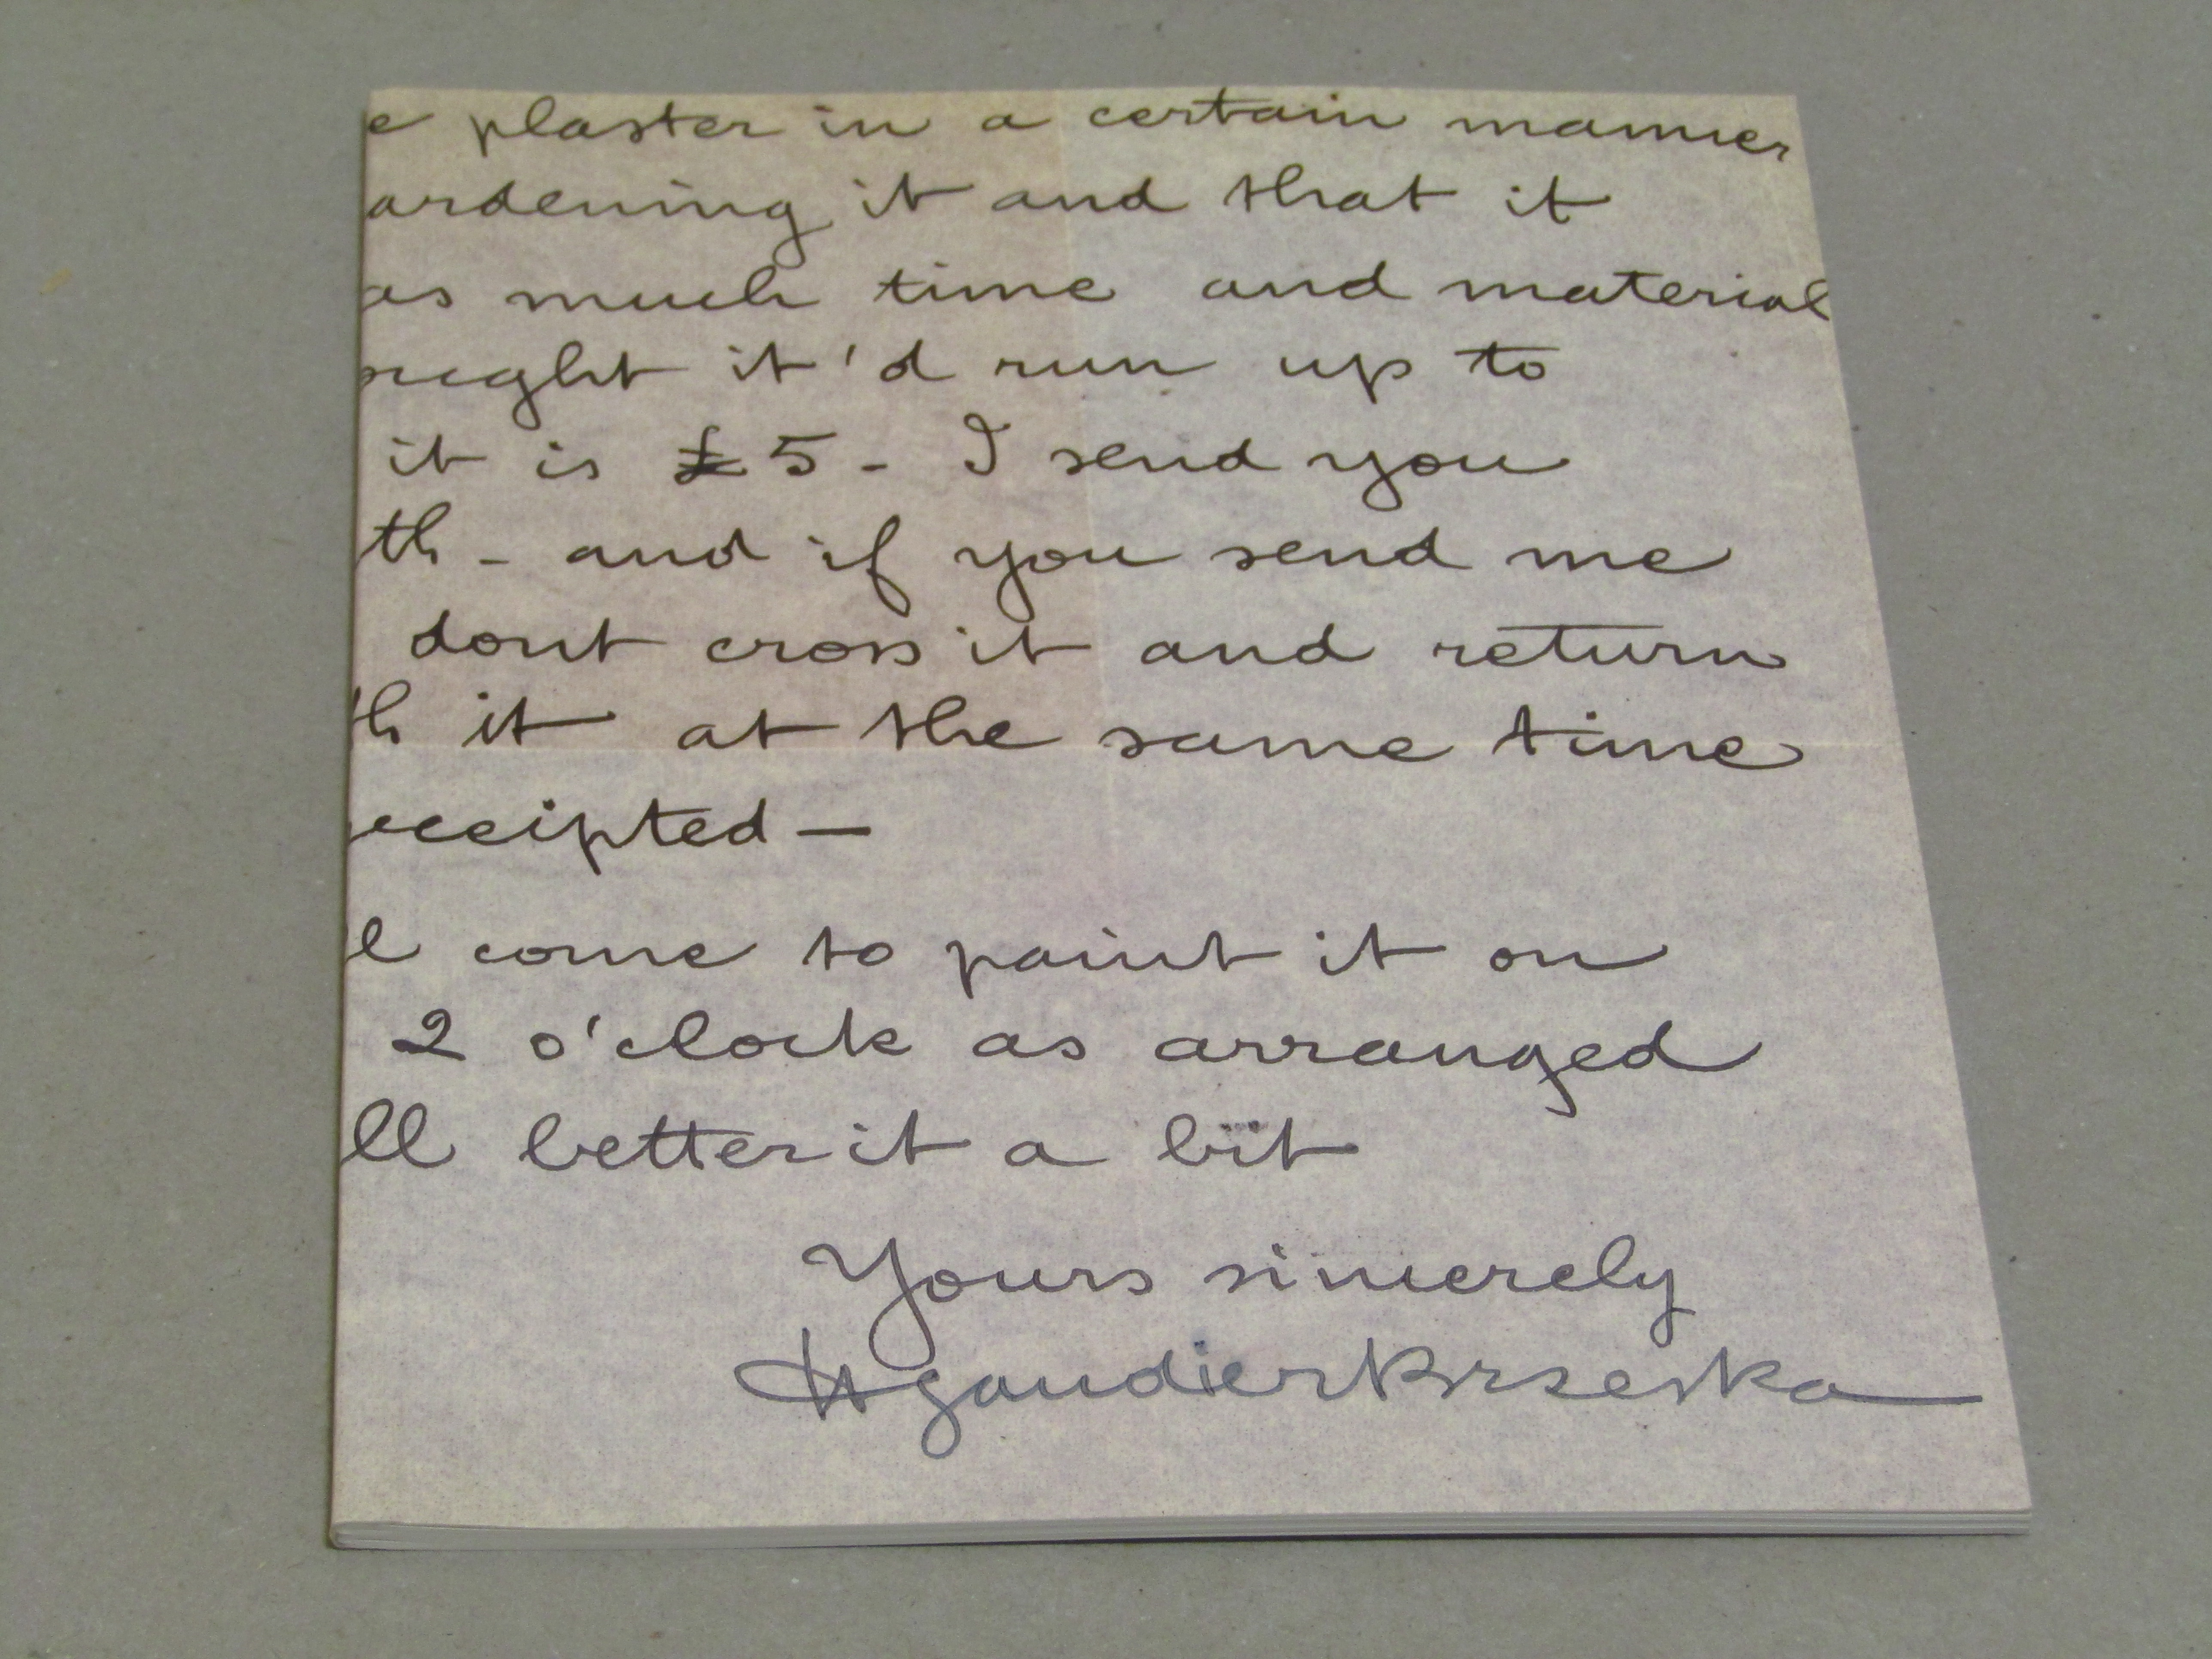 e plaster in a certain manner
ardening it and that it
as much time and material
ought it'd run up to
it is £5 - I send you
th - and if you send me
dont cross it and return
th it at the same time
eceipted —
l come to paint it on
2 o'clock as arranged
ll better it a bit
Yours sincerely
H gaudier Brzeska